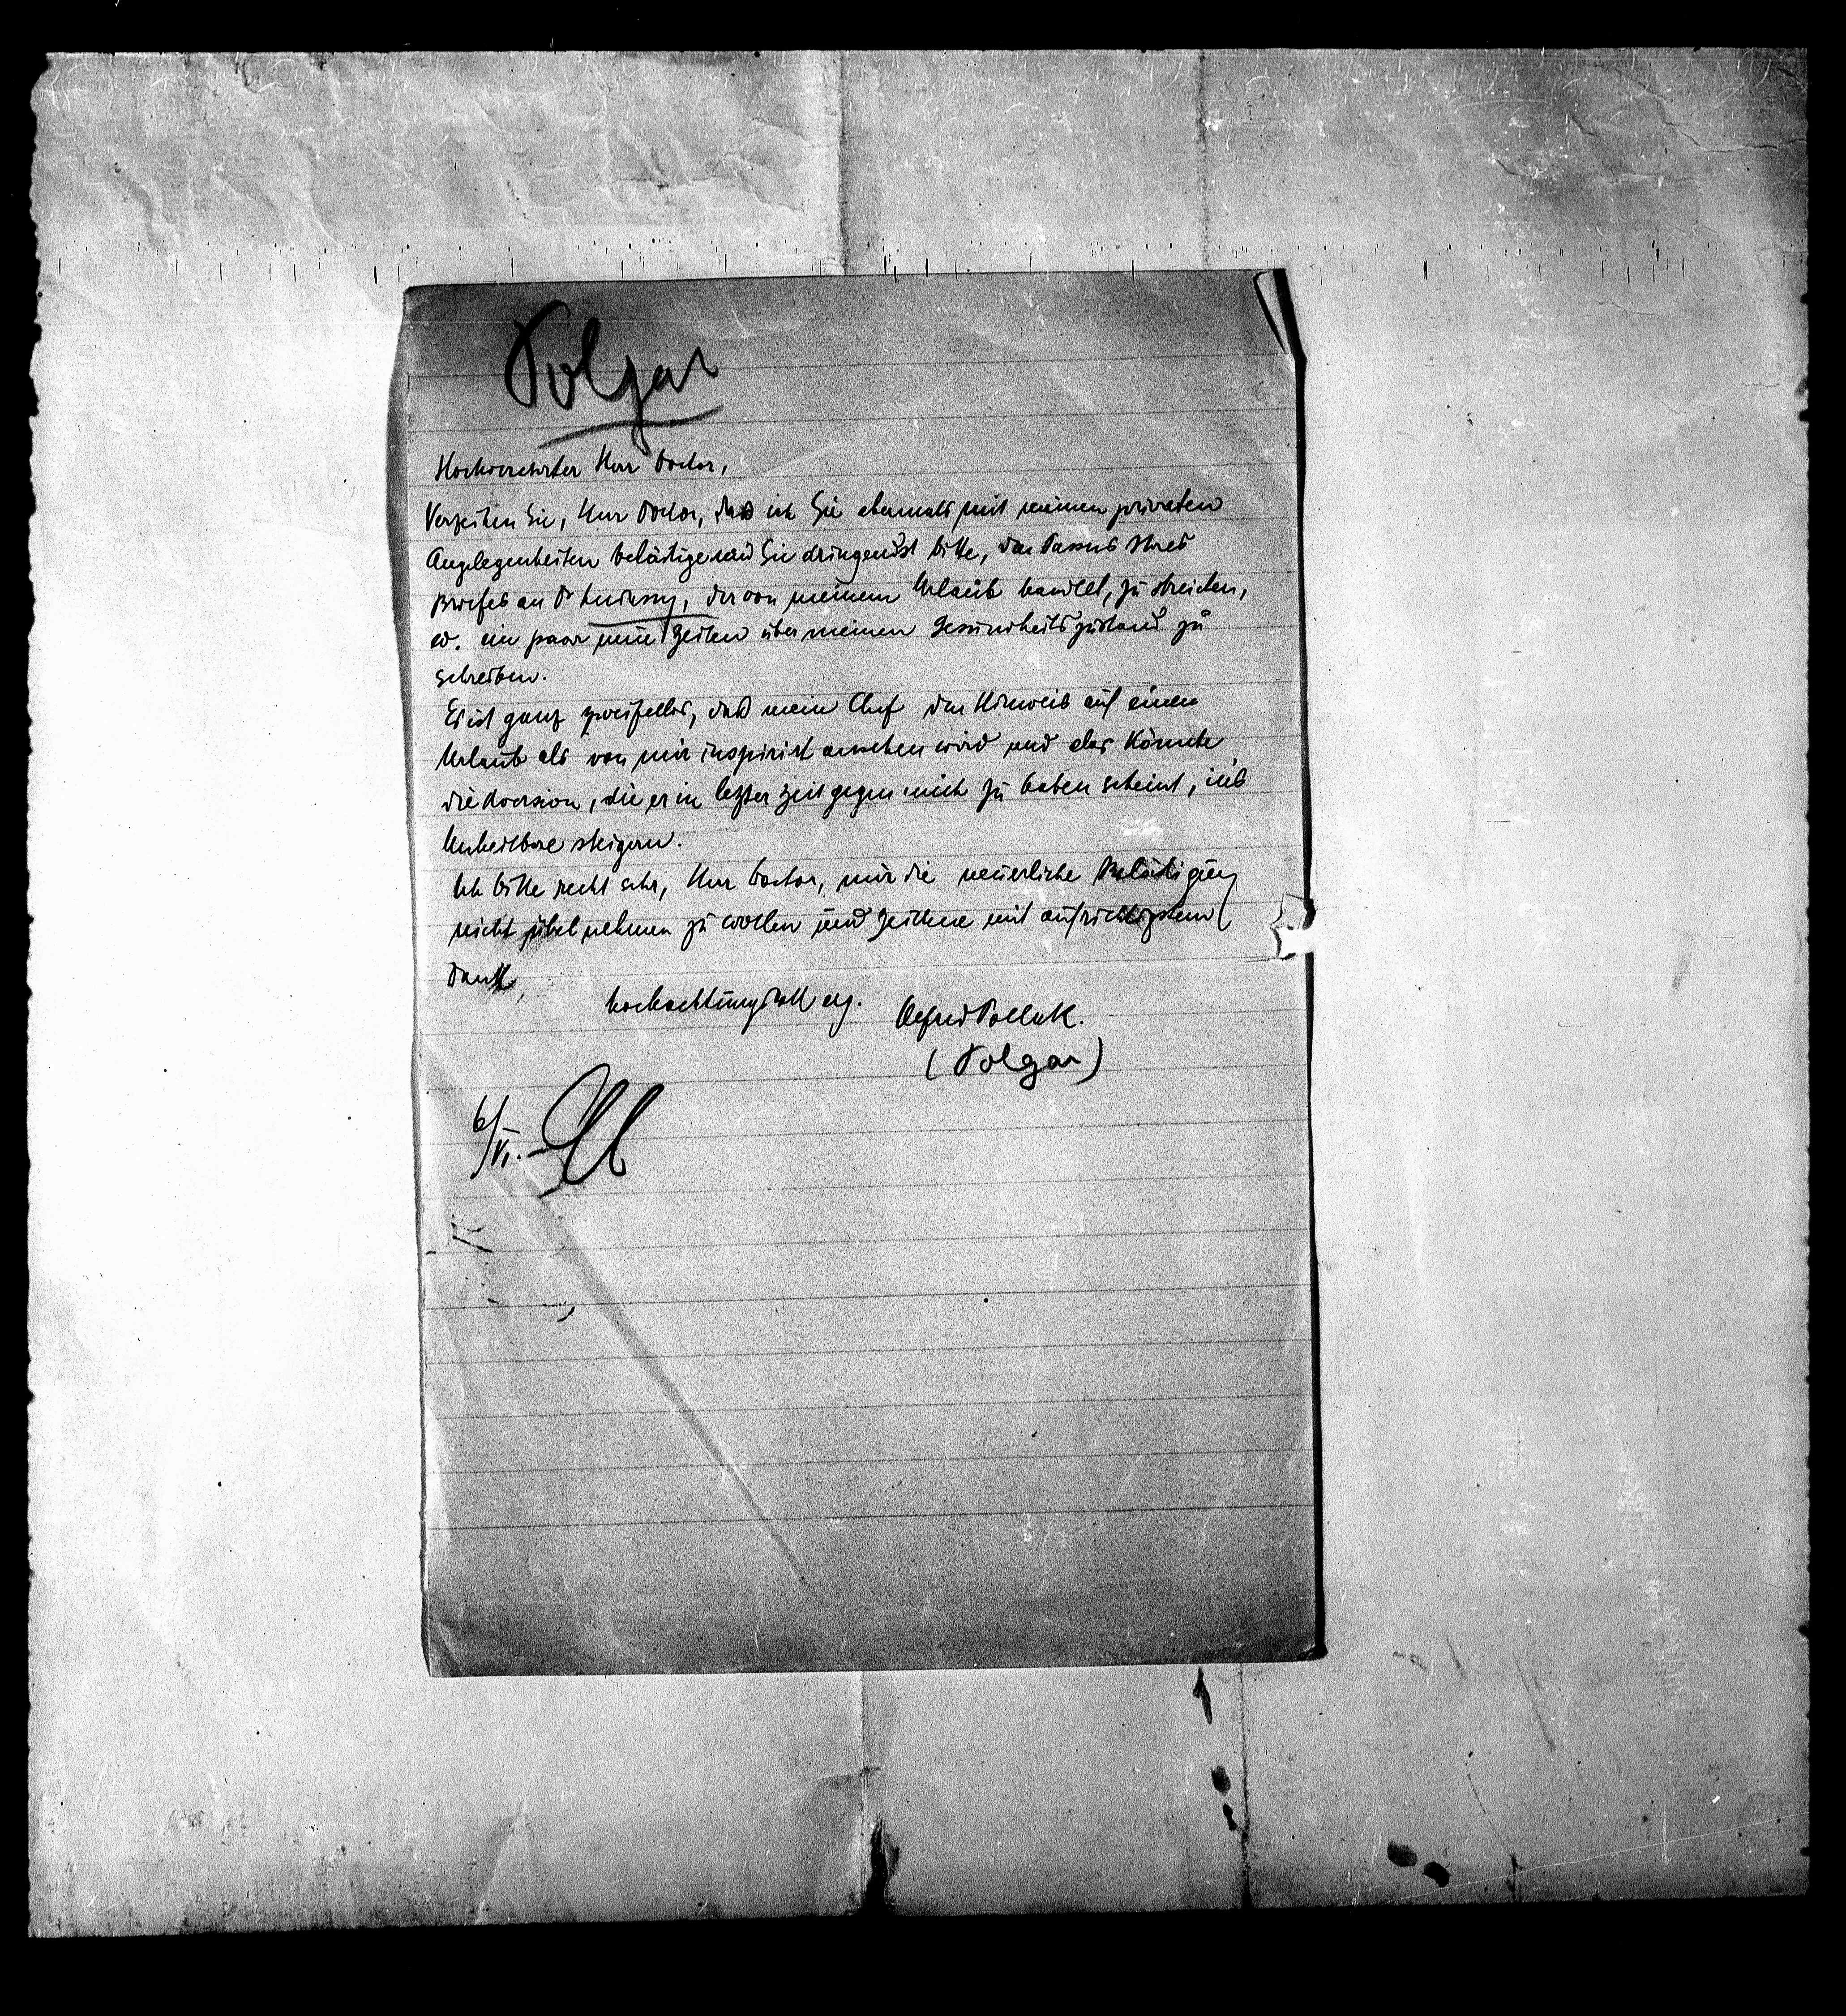 Polgar
Hochverehrter Herr Doctor,
Verzeihen Sie, Herr Doctor, daß ich Sie abermals mit meinen privaten
Angelegenheiten belästige und Sie dringendst bitte, den Passus Ihres
Briefes an Dr, der von meinem Urlaub handelt, zu streichen,
ev. ein paar neue Zeilen über meinen Gesundheitszustand zu
schreiben.
Es ist ganz zweifellos, daß mein Chef den Hinweis auf einen
Urlaub als von mir inspirirt ansehen wird und das könnte
die Aversion, die er in letzter Zeit gegen mich zu haben scheint, ins
Unheilbare steigern.
Ich bitte recht sehr, Herr Doctor, mir die neuerliche Belästigung
nicht übel nehmen zu wollen und zeichne mit aufrichtigstem
Dank
hochachtungsvoll erg. Alfred Pollak.
(Polgar)
6/VI.